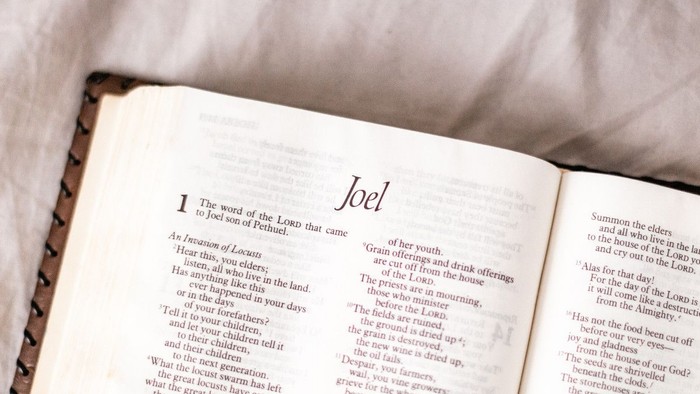 Joel
1 The word of the LORD that came
to Joel son of Pethuel.
An Invasion of Locusts
2Hear this, you elders;
listen, all who live in the land.
Has anything like this
ever happened in your days
or in the days
of your forefathers?
3Tell it to your children,
and let your children tell it
to their children,
and their children
to the next generation.
4What the locust swarm has left
the great locusts have
what the great
of her youth.
9Grain offerings and drink offerings
are cut off from the house
of the LORD.
The priests are in mourning,
those who minister
before the LORD.
10The fields are ruined,
the ground is dried up
the grain is destroyed,
the new wine is dried up,
the oil fails.
11Despair, you farmers,
wail, you vine growers;
grieve for the
Summon the elders
and all who live in the
to the house of the LORD
and cry out to the LORD.
15Alas for that day!
For the day of the LORD
it will come like
from the Almighty.
16Has not the food been cut off
before our very eyes—
joy and gladness
from the house of our God?
17The seeds are shrivelled
beneath the clods.
The storehouses